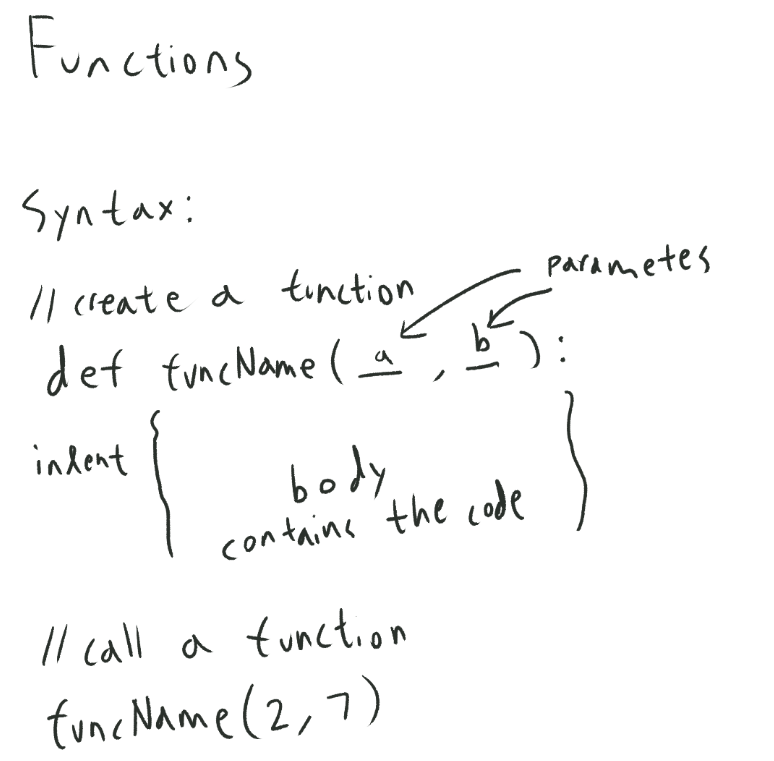 Functions
Syntax:
// create a function
parametes
def funcName ( a , b ) :
indent { body
contains the code
// call a function
funcName(2, 7)